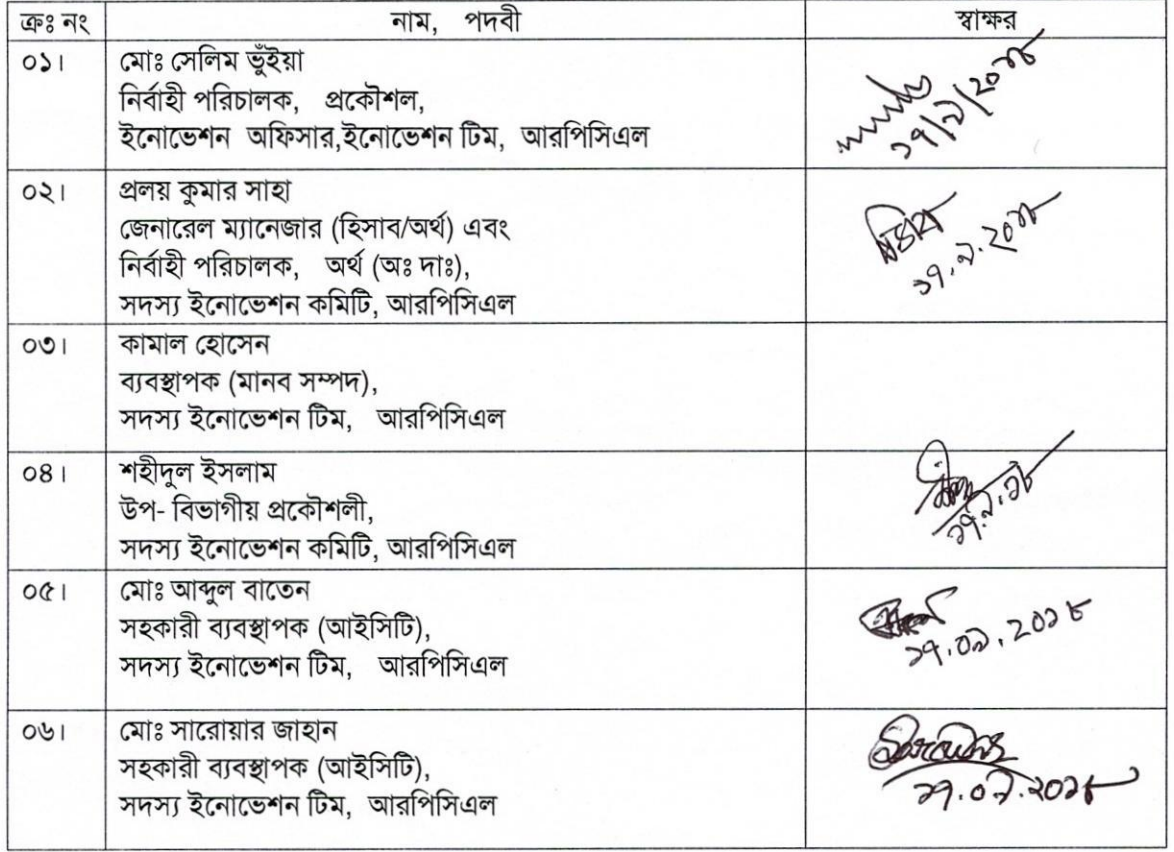 ক্রঃ নং নাম, পদবী স্বাক্ষর
০১। মোঃ সেলিম ভুঁইয়া
নির্বাহী পরিচালক, প্রকৌশল,
ইনোভেশন অফিসার,ইনোভেশন টিম, আরপিসিএল
০২। প্রলয় কুমার সাহা
জেনারেল ম্যানেজার (হিসাব/অর্থ) এবং
নির্বাহী পরিচালক, অর্থ (অঃ দাঃ),
সদস্য ইনোভেশন কমিটি, আরপিসিএল
০৩। কামাল হোসেন
ব্যবস্থাপক (মানব সম্পদ),
সদস্য ইনোভেশন টিম, আরপিসিএল
০৪। শহীদুল ইসলাম
উপ- বিভাগীয় প্রকৌশলী,
সদস্য ইনোভেশন কমিটি, আরপিসিএল
০৫। মোঃ আব্দুল বাতেন
সহকারী ব্যবস্থাপক (আইসিটি),
সদস্য ইনোভেশন টিম, আরপিসিএল
১৭.০৯.২০১৮
০৬। মোঃ সারোয়ার জাহান
সহকারী ব্যবস্থাপক (আইসিটি),
সদস্য ইনোভেশন টিম, আরপিসিএল
১৭.০৯.২০১৮